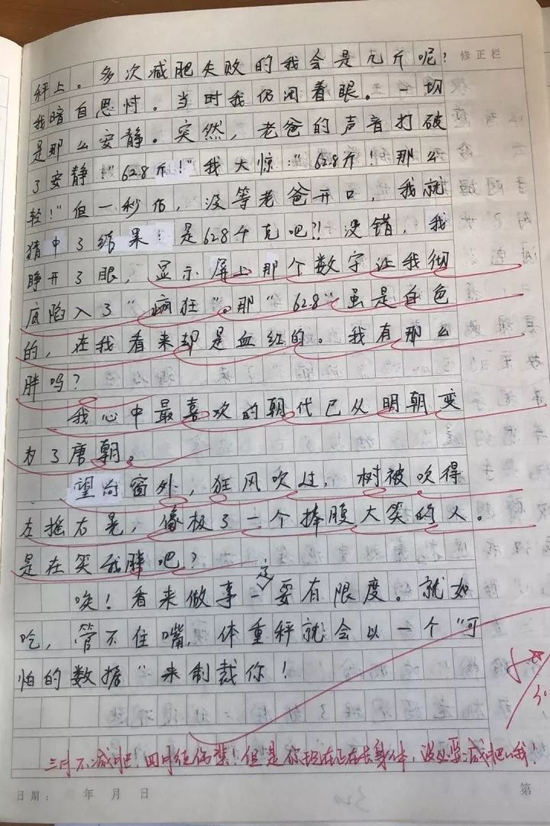 修正栏
秤上。多次减肥失败的我会是几斤呢？
我暗自思忖。当时我仍闭着眼。一切
是那么安静。突然，老爸的声音打破
了安静！“62.8斤！”我大惊：“62.8斤！那么
轻！”但一秒后，没等老爸开口，我就
猜中了结果：是62.8千克吧？！没错，我
睁开了眼，显示屏上那个数字让我彻
底陷入了“疯狂”。那“62.8”虽是白色
的，在我看来却是血红的。我有那么
胖吗？
我心中最喜欢的朝代已从明朝变
为了唐朝。
望向窗外，狂风吹过，树被吹得
左摇右晃，像极了一个捧腹大笑的人。
是在笑我胖吧？
唉！看来做事一定要有限度。就如
吃，管不住嘴，体重秤就会以一个“可
怕的数据”来制裁你！
三月不减肥！四月徒伤悲！但是你现在正在长身体，没必要减肥哦！
日期： 年 月 日
第